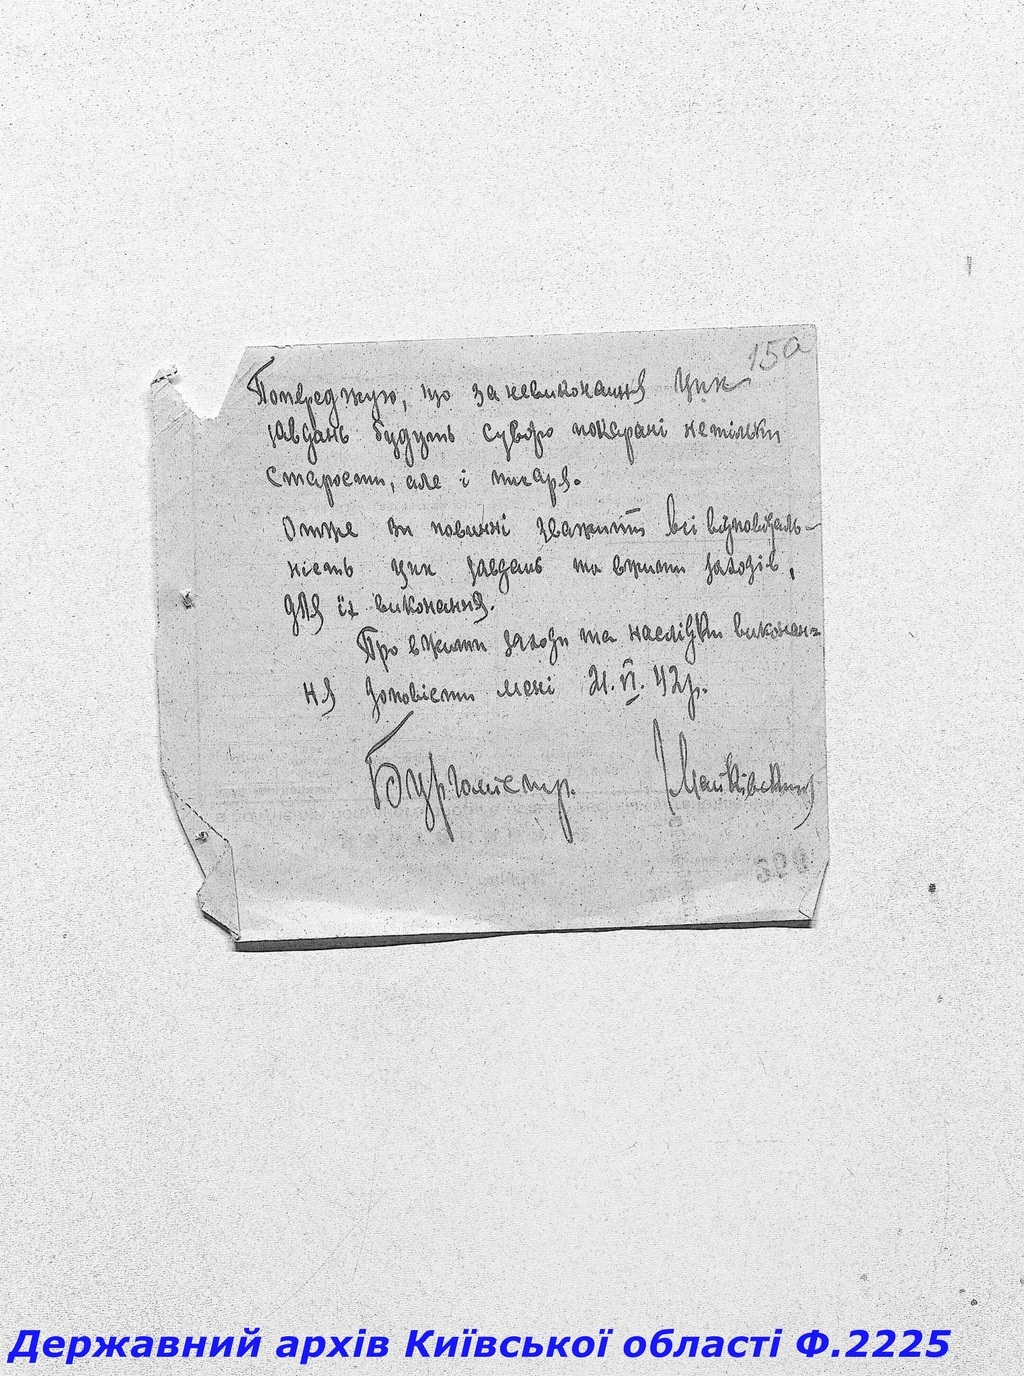 15а
Попереджую, що за невиконання цих
завдань будуть суворо покарані нетільки
старости, але і писарі.
Отже ви повинні зважити всі відповідаль-
ність цих завдань та вжити заходів,
для їх виконання.
Про вжиті заходи та наслідки виконан-
ня доповісти мені 21.VI.42р.
Бургомістр.
Державний архів Київської області Ф.2225